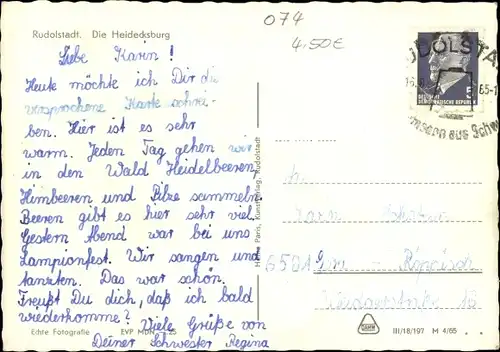 Rudolstadt. Die Heidecksburg
074
4,50€
Liebe Karin!
Heute möchte ich Dir die
versprochene Karte schrei-
ben. Hier ist es sehr
warm. Jeden Tag gehen wir
in den Wald Heidelbeeren,
Himbeeren und Pilze sammeln.
Beeren gibt es hier sehr viel.
Gestern Abend war bei uns
Lampionfest. Wir sangen und
tanzten. Das war schön.
Freußt Du dich, daß ich bald
wiederkomme?
Viele Grüße von
Deiner Schwester Regina
Echte Fotografie EVP MDN
Paris, Kunstverlag, Rudolstadt
UDOLSTA
5
DEUTSCHE
DEMOKRATISCHE REPUBLIK
aus
6501
III/18/197 M 4/65